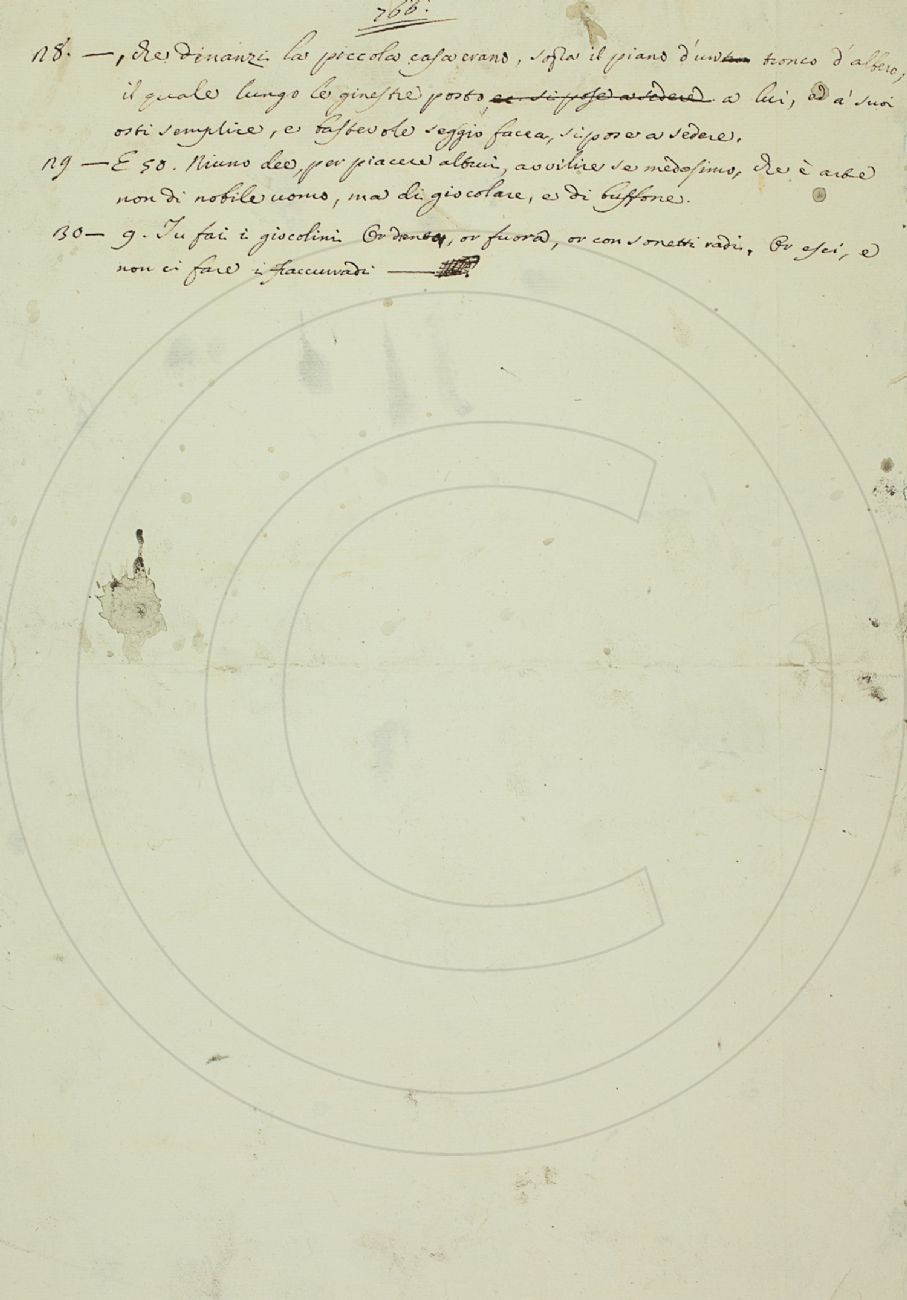 766.
128. — , che dinanzi la piccola casa erano, sopra il piano d'un tronco d'albero,
il quale lungo le ginestre posto, e si pose a sedere a lui, ed a' suoi
osti semplice, e bastevole seggio facea, si pose a sedere.
129 — E 50. Niuno dee, per piacere altrui, avvilire se medesimo, che è arte
non di nobile uomo, ma di giocolare, e di buffone.
130 — 9. Tu fai i giocolini Or dentro, or fuora, or con sonetti radi, Or esci, e
non ci fare i fraccurradi —